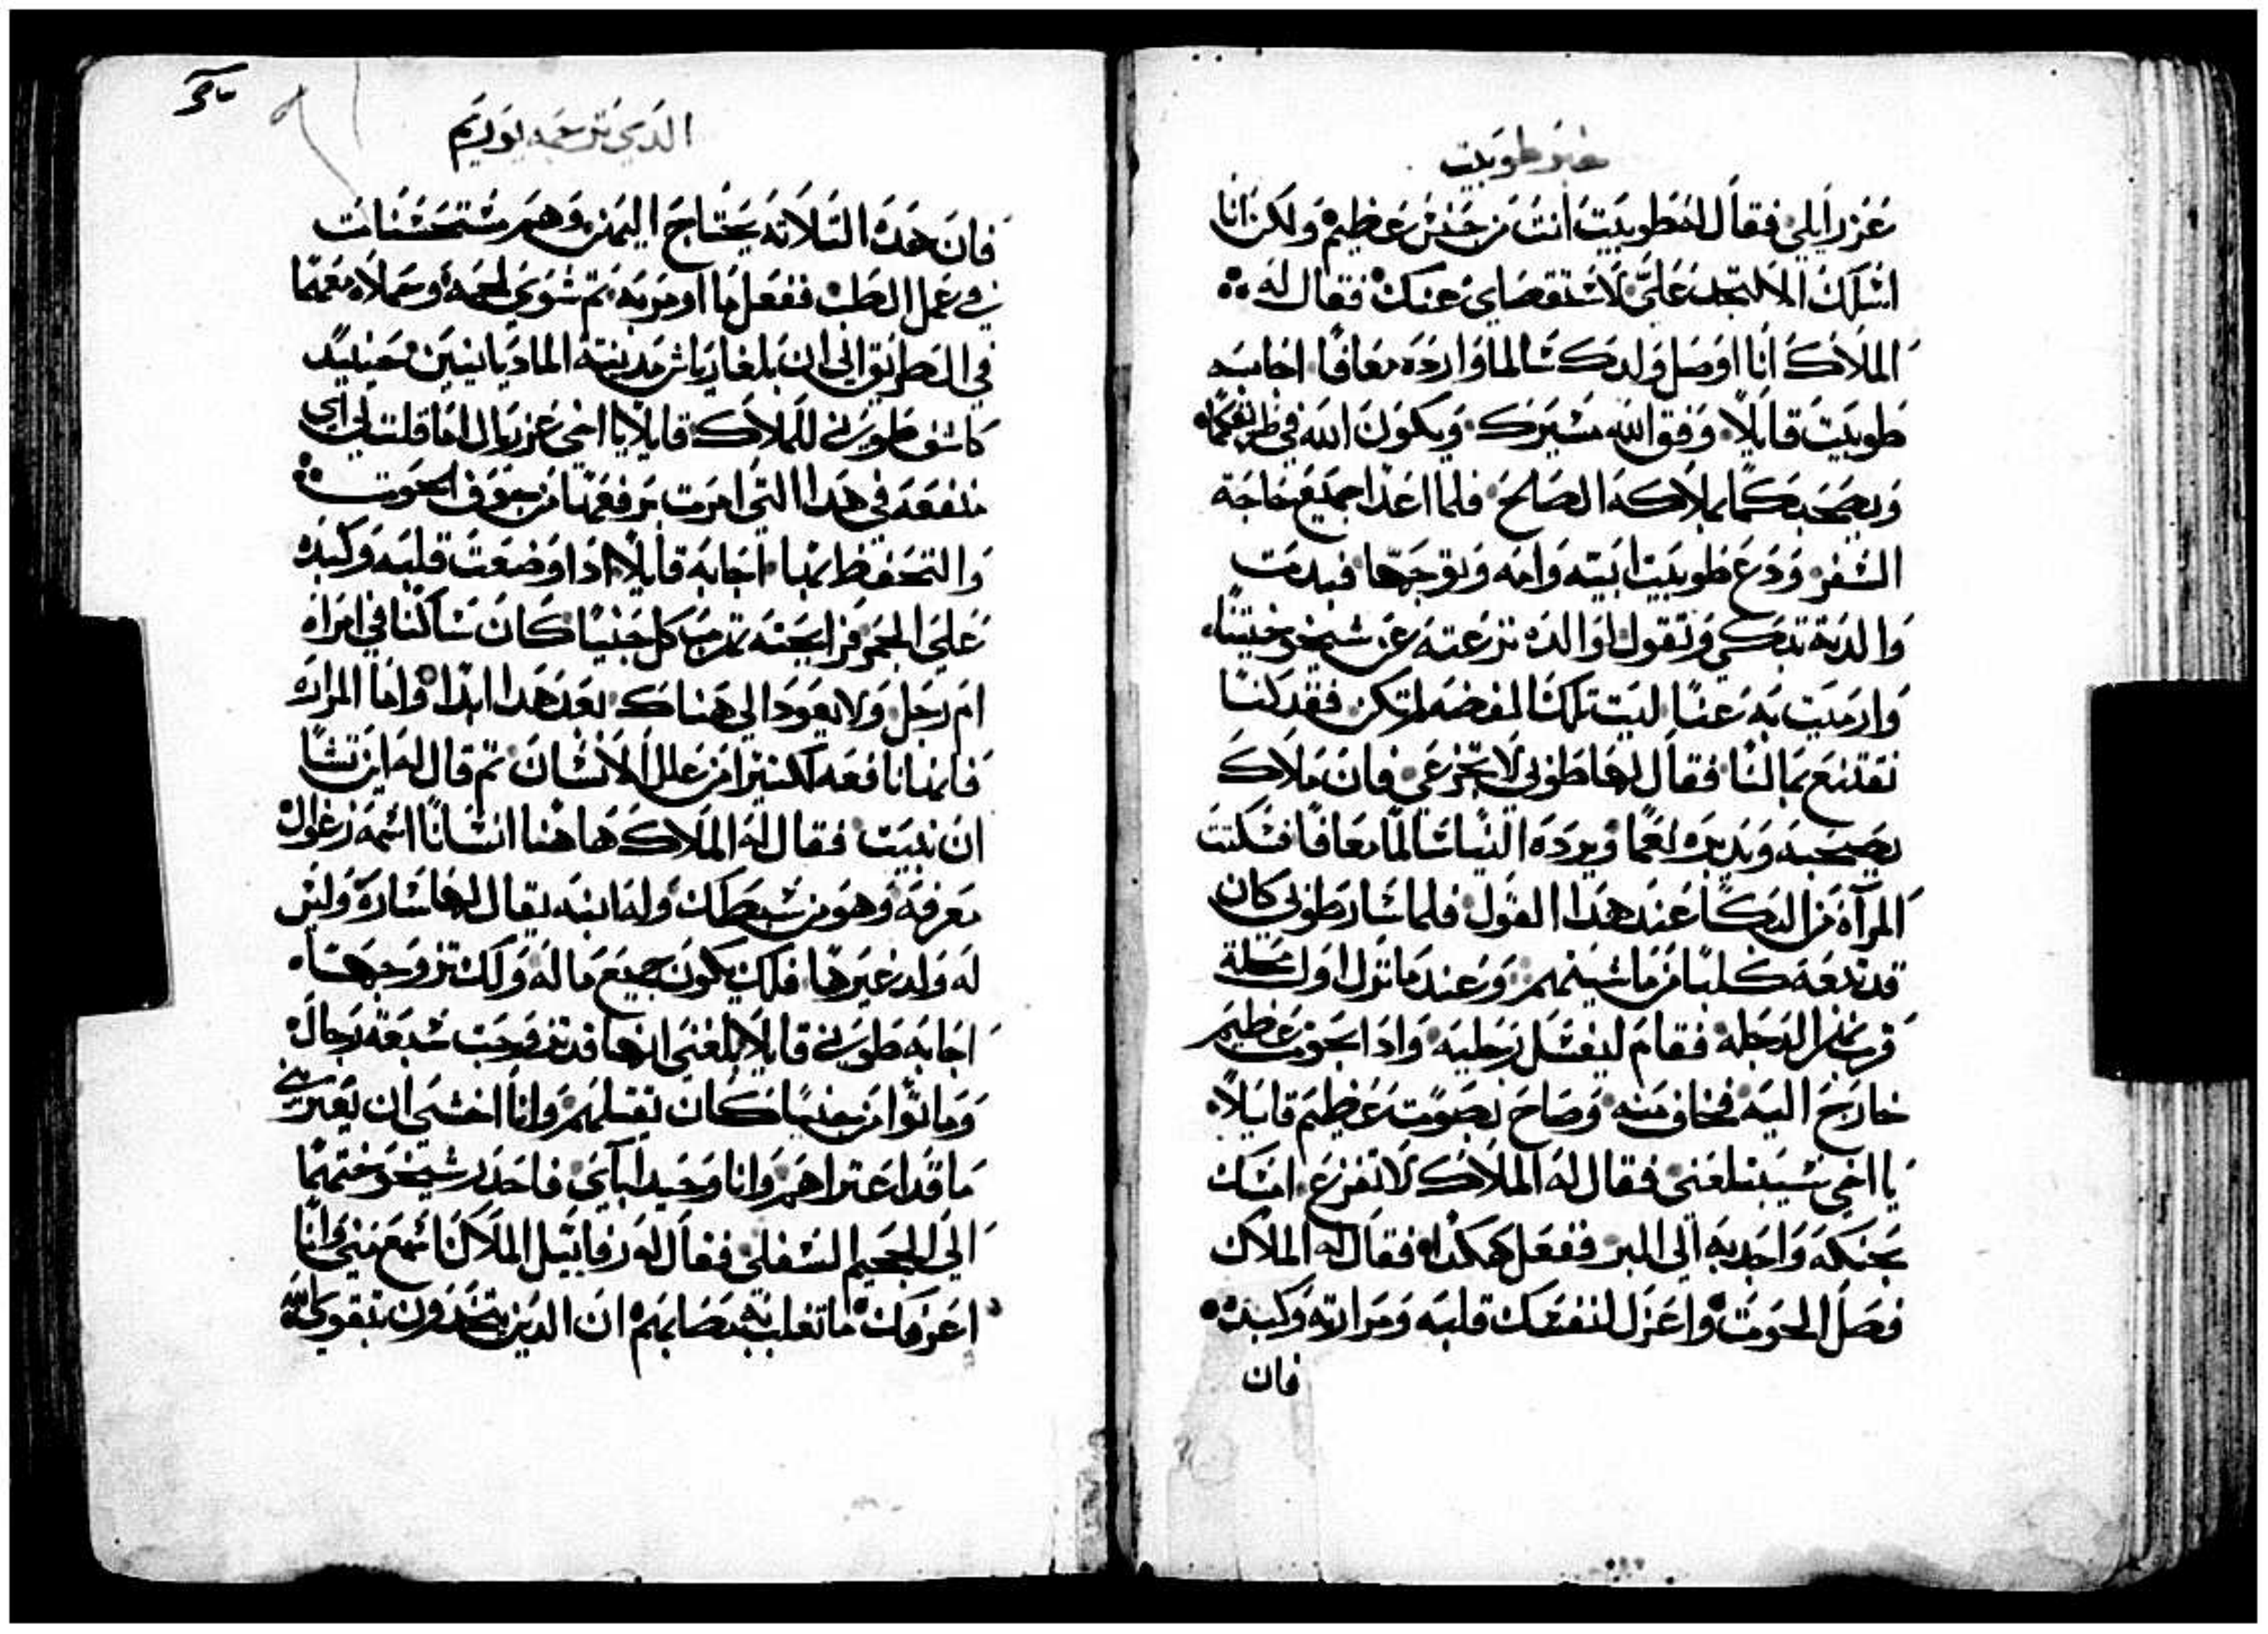 خبر طوبيت
عزرايلي فقال له طوبيت انت من جنس عظيم ولكن انا
اسلك الا تجد علي لاستقصاي عنك فقال له
الملاك انا اوصل ولدك سالما وارده معافا اجابه
طوبيت قايلا وفق الله مسيرك ويكون الله في طريقكما
ويصحبكما بملاكه الصالح فلما اعدا جميع حاجة
السفر ودع طوبيت ابيته وامه وتوجها فبدت
والدته تبكي وتقول اوالده نزعته عن شيخوختينا
وارميت به عنا ليت تلك الفضه لم تكن فقد كنا
نقتنع بمالنا فقال لها طوبي لا تجزعي فان ملاك
يصحبه ويدبره لعما ويرده الينا سالما معافا فسكتت
المرآة من البكا عند هذا القول فلما سار طوبي كان
قد تبعه كلبا من ماشيتهم وعند ما نزل اول محلة
قرب نهر الدجله فقام ليغسل رجليه وادا بحوت عظيم
خارج اليه فخاف منه وصاح بصوت عظيم قايلا
يا اخي سيبتلعني فقال له الملاك لا تفزع امسك
بحنكه واجدبه الي البر ففعل هكدا فقال له الملاك
فصل الحوت واعزل لنفعك قلبه ومرارته وكبده
فان
الدي ترجمه يوريم
فان هده التلاته يحتاج اليهن وهم مستحسنات
في عمل الطب ففعل ما اومر به تم شوي لحمه وحملاه معهما
في الطريق الي ان بلغا رياش مدينة الماديانيين حينيد
كاشف طوبي للملاك قايلا يا اخي عزريال اما قلت لي اي
منفعه في هدا التي امرت برفعها من جوف الحوت
والتحفظ بها اجابه قايلا ادا وضعت قلبه وكبده
علي الجمر فرايحته تدهب كل جنيا كان ساكنا في امراه
ام رجل ولا يعود الي هناك بعد هدا ابدا واما المراره
فانها نافعه لكتير من علل الانسان تم قال له اين تشا
ان نبيت فقال له الملاك ها هنا انسانا اسمه زغوال
تعرفه وهو من سبطك وله ابنه يقال لها ساره وليس
له ولد غيرها فلك يكون جميع ماله ولك تزوجها
اجابه طوبي قايلا بلغني انها قد تزوجت سبعة رجال
وماتوا من جنيا كان يقتلهم وانا اخشي ان يعتريني
ما قد اعتراهم وانا وحيد ابآي فاحدر شيخوختهما
الي الجحيم السفلي فقال له رفاييل الملاك اسمع مني وانا
اعرفك ما تغلب به مصايبهم ان الدين يتخدون بتقوي الله